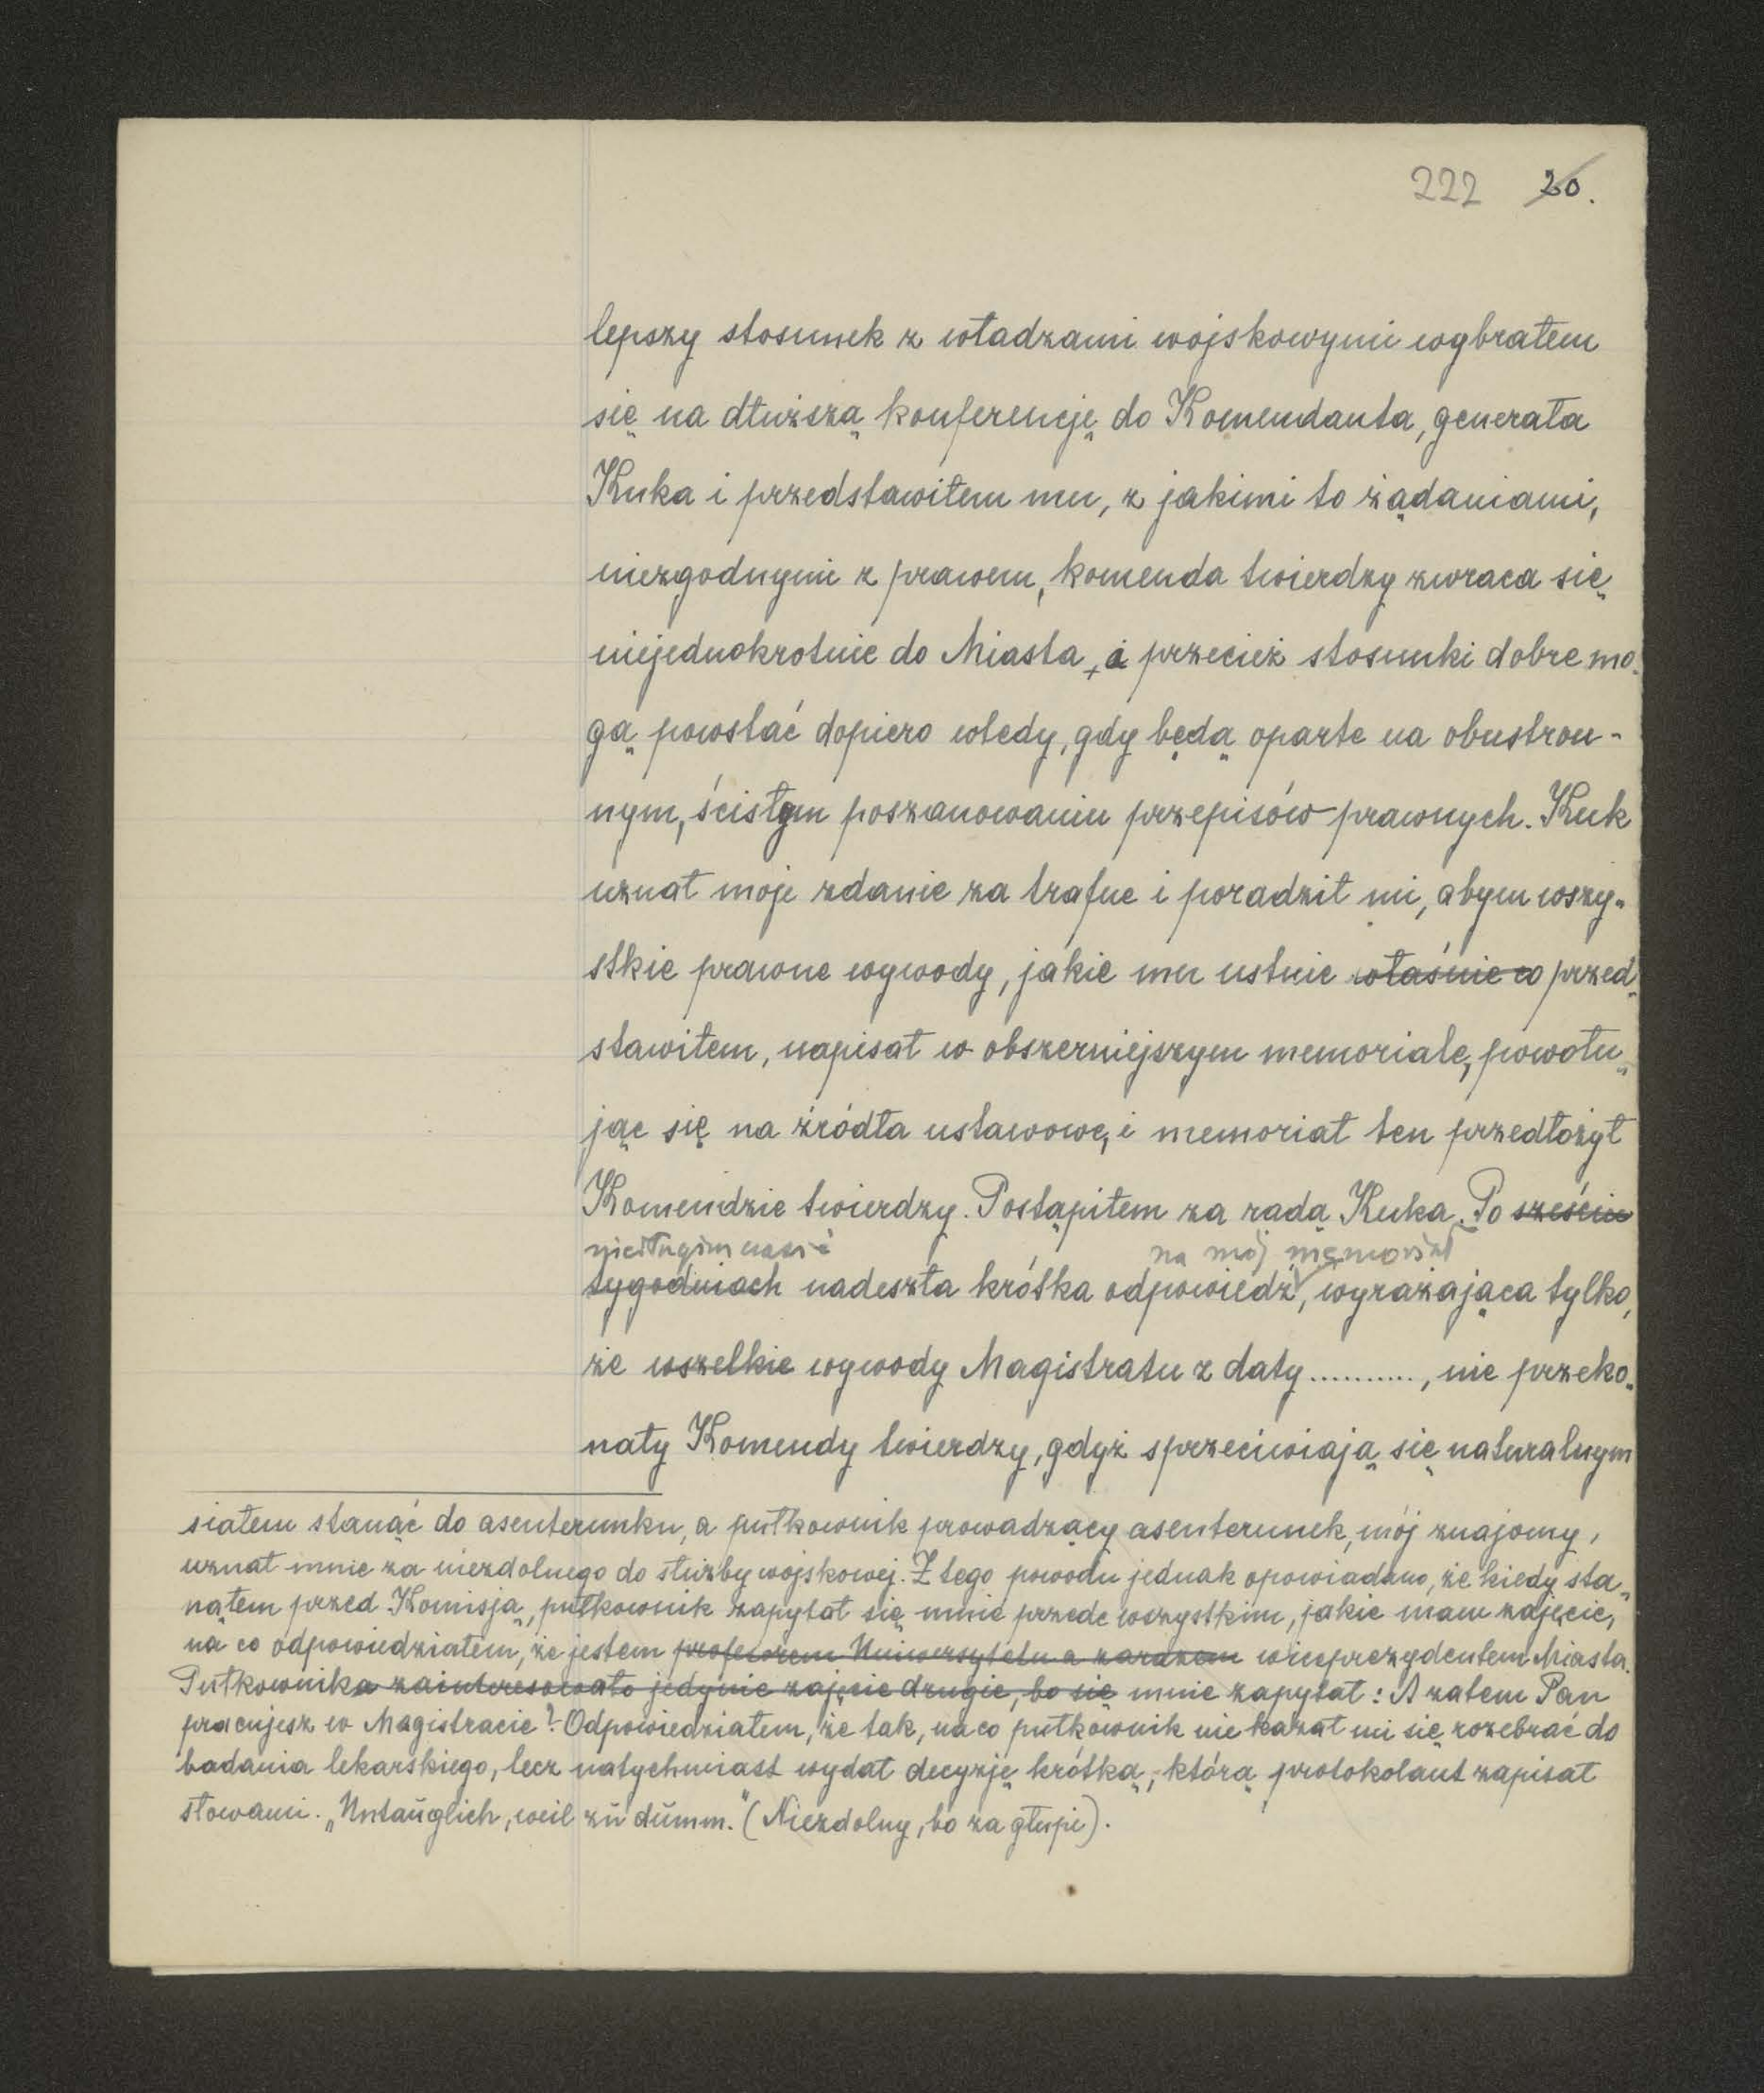 222 20.
lepszy stosunek z władzami wojskowymi wybrałem
się na dłuższą konferencję do Komendanta, generała
Kuka i przedstawiłem mu, z jakimi to żądaniami,
niezgodnymi z prawem, komenda twierdzy zwraca się
niejednokrotnie do Miasta, a przecież stosunki dobre mo-
gą powstać dopiero wtedy, gdy będą oparte na obustron-
nym, ścisłym poszanowaniu przepisów prawnych. Kuk
uznał moje zdanie za trafne i poradził mi, abym wszy-
stkie prawne wywody, jakie mu ustnie właśnie co przed-
stawiłem, napisał w obszerniejszym memoriale, powołu-
jąc się na źródła ustawowe, i memoriał ten przedłożył
Komendzie twierdzy. Postąpiłem za radą Kuka. Po sześciu
niedługim czasie na mój memoriał
tygodniach nadeszła krótka odpowiedź, wyrażająca tylko,
że wszelkie wywody Magistratu z daty .........., nie przeko-
nały Komendy twierdzy, gdyż sprzeciwiają się naturalnym
siałem stanąć do asenterunku, a pułkownik prowadzący asenterunek, mój znajomy,
uznał mnie za niezdolnego do służby wojskowej. Z tego powodu jednak opowiadano, że kiedy sta-
nąłem przed Komisją, pułkownik zapytał się mnie przede wszystkim, jakie mam zajęcie,
na co odpowiedziałem, że jestem profesorem Uniwersytetu a zarazem wiceprezydentem Miasta.
Pułkownika zainteresowało jedynie zajęcie drugie, bo się mnie zapytał: A zatem Pan
pracujesz w Magistracie? - Odpowiedziałem, że tak, na co pułkownik nie kazał mi się rozebrać do
badania lekarskiego, lecz natychmiast wydał decyzję krótką, którą protokolant zapisał
słowami. „Untauglich, weil zu dumm." (Niezdolny, bo za głupi).